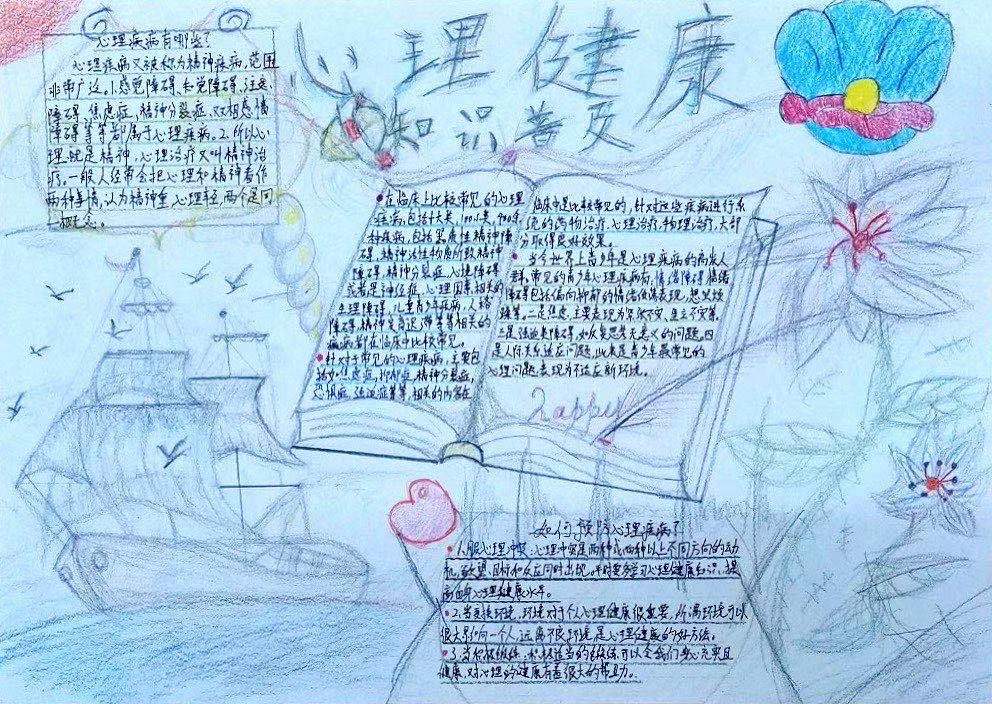 心理健康
知识普及
心理疾病有哪些？
心理疾病又被称为精神疾病，范围
非常广泛。1.感觉障碍、知觉障碍、注意
障碍，焦虑症，精神分裂症、双相情感
障碍等等都属于心理疾病。2.所以心
理就是精神，心理治疗又叫精神治
疗。一般人经常会把心理和精神看作
两种事情，认为精神重，心理轻，两个是同
一概念。
在临床上比较常见的心理
疾病，包括十大类，100小类，400余
种疾病，包括器质性精神障
碍、精神活性物质所致精神
障碍、精神分裂症、心境障碍
或者是神经症，心理因素相关的
生理障碍，儿童青少年疾病，人格
障碍，精神发育迟滞等等相关的
疾病都在临床中比较常见。
针对于常见的心理疾病，主要包
括如焦虑症，抑郁症，精神分裂症，
恐惧症，强迫症等等，相关的内容在
临床中是比较常见的，针对这些疾病进行系
统的药物治疗，心理治疗，物理治疗，大部
分取得良好效果。
当今世界上青少年是心理疾病的高发人
群，常见的青少年心理疾病有：情绪障碍情绪
障碍包括偏向抑郁的情绪低落表现，想发烦
躁等。二是焦虑，主要表现为紧张不安，坐立不安等。
三是强迫类障碍，如反复思考无意义的问题。四
是人际关系适应问题，此类是青少年最常见的
心理问题，表现为不适应新环境。
happy
如何预防心理疾病？
1.服心理冲突：心理冲突是两种或两种以上不同方向的动
机、欲望、目标和反应同时出现。平时要多学习心理健康知识，提
高自身心理健康水平。
2.当变换环境，环境对于个人心理健康很重要，所谓环境可以
很大影响一个人，远离不良环境是心理健康的好方法。
3.当积极锻练，积极适当的锻练可以令我们身心充实且
健康，对心理的健康有着很大的帮助。